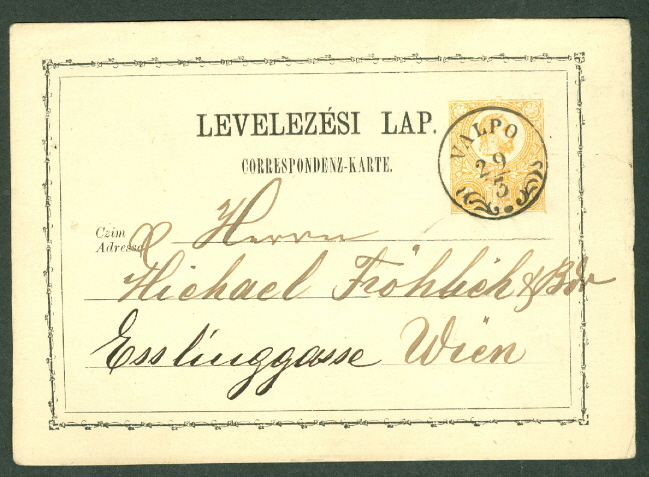 LEVELEZÉSI LAP.
CORRESPONDENZ-KARTE.
VALPO
29/3
Czim
Adresse
Herrn
Michael Fröhlich & Bdr
Esslinggasse Wien